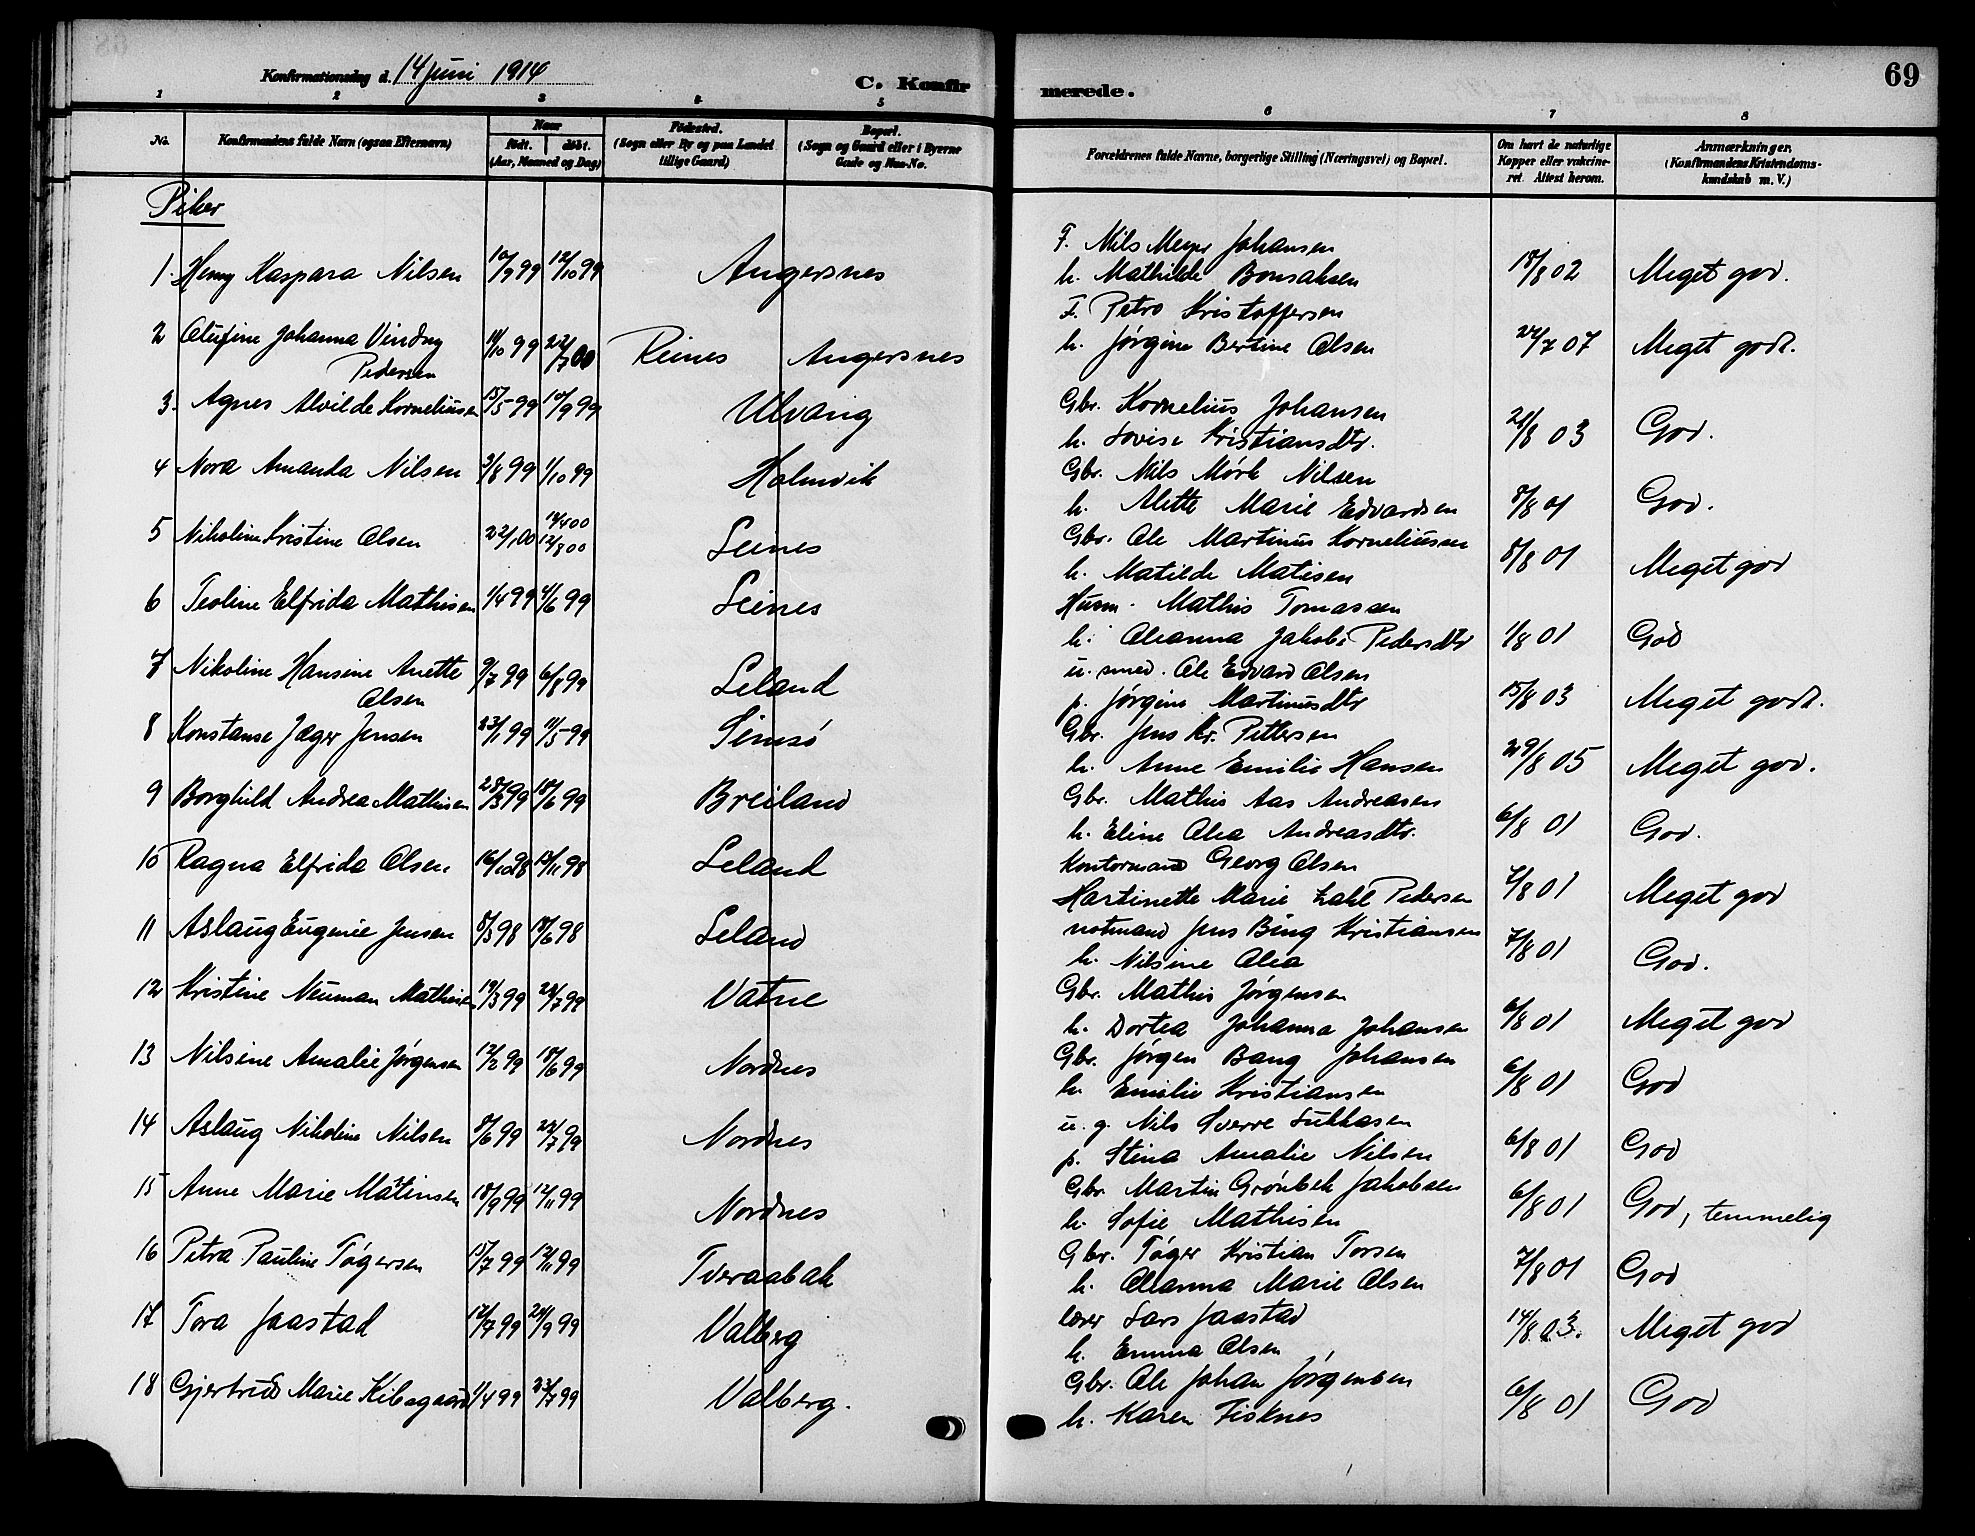 Konfirmationsdag d. 14 Juni 1914
C. Konfirmerede.
69
1 2 3 4 5 6 7 8
No.
Konfirmandens fulde Navn (ogsaa Efternavn)
Naar
født. døbt.
(Aar, Maaned og Dag)
Fødested.
(Sogn eller By og paa Landet
tillige Gaard)
Bopæl.
(Sogn og Gaard eller i Byerne
Gade og Hus-No.
Forældrenes fulde Navne, borgerlige Stilling (Næringsvei) og Bopæl.
Om havt de naturlige
Kopper eller vakcine-
ret. Attest herom.
Anmærkninger.
(Konfirmandens Kristendoms-
kundskab m. V.)
Piker
F. Nils Meyer Johansen
1. Henny Kaspara Nilsen 10/9 99 12/10 99 Angersnes h. Mathilde Bonsaksen 18/8 02 Meget god.
F. Petro Kristoffersen
2 Olufine Johanna Vindny 11/10 99 22/7 00 Reines Angersnes h. Jørgine Bertine Olsen 24/7 07 Meget godt.
Pedersen
3. Agnes Alvilde Korneliussen 15/5 99 10/9 99 Ulvang Gbr. Kornelius Johansen
h. Lovise Kristiansdtr. 21/8 03 God.
4 Nora Amanda Nilsen 3/8 99 1/10 99 Holmvik Gbr. Nils Mørk Nilsen
h. Alette Marie Edvardsen 8/8 01 God.
5 Nikoline Kristine Olsen 22/1 00 14/4 00 12/8 00 Leines Gbr. Ole Martinus Korneliussen
h. Matilde Matisen 8/8 01 Meget god
6 Teoline Elfrida Mathisen 1/4 99 4/6 99 Leines Husm. Mathis Tomassen
h. Oleanna Jakobs Pedersdtr 1/8 01 God
7 Nikoline Hansine Anette 9/7 99 6/8 99 Leland u. smed. Ole Edvard Olsen
Olsen
p. Jørgine Martinusdtr 15/8 03 Meget godt.
8 Konstanse Jæger Jensen 23/1 99 11/5 99 Simsø Gbr. Jens Kr. Pettersen
h. Anne Emilie Hansen 29/8 05 Meget god.
9 Borghild Andrea Mathisen 28/3 99 18/6 99 Breiland Gbr. Mathis Aas Andreasen
h. Eline Olea Andreasdtr. 6/8 01 God.
10 Ragna Elfrida Olsen 16/10 98 13/11 98 Leland Kontormand Georg Olsen
Hartinette Marie Zahl Pedersen 7/8 01 Meget god
11 Aslaug Eugenie Jensen 8/3 98 18/6 98 Leland notmand Jens Bing Kristiansen
h. Nilsine Olea 7/8 01 God.
12 Kristine Neuman Mathisen 19/3 99 24/7 99 Vatne Gbr. Mathis Jørgensen
h. Dortea Johanna Johansen 6/8 01 Meget god
13 Nilsine Amalie Jørgensen 12/2 99 18/6 99 Nordnes Gbr. Jørgen Bang Johansen
h. Emilie Kristiansen 6/8 01 God
14 Aslaug Nikoline Nilsen 8/6 99 24/7 99 Nordnes u. g. Nils Sverre Lukkasen
p. Stina Amalie Nilsen 6/8 01 God
15 Anne Marie Matinsen 18/9 99 12/11 99 Nordnes Gbr Martin Grønbek Jakobsen
h. Sofie Mathisen 6/8 01 God, temmelig
16 Petra Pauline Tøgersen 15/7 99 12/11 99 Tveraabak Gbr. Tøger Kristian Torsen
h. Oleanna Marie Olsen 7/8 01 God
17 Tora Jaastad 12/7 99 24/9 99 Valberg lærer Lars Jaastad
h. Emma Olsen 14/8 03. Meget god
18 Gjertrud Marie Kibsgaard 1/4 99 23/7 99 Valberg. Gbr. Ole Johan Jørgensen
h. Karen Fisknes 6/8 01 God